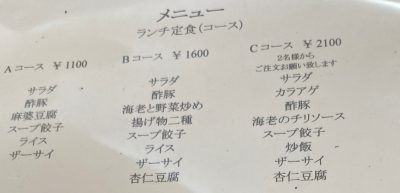 メニュー
ランチ定食(コース)
Aコース ￥1100
サラダ
酢豚
麻婆豆腐
スープ餃子
ライス
ザーサイ
Bコース ￥1600
サラダ
酢豚
海老と野菜炒め
揚げ物二種
スープ餃子
ライス
ザーサイ
杏仁豆腐
Cコース ￥2100
2名様から
ご注文お願い致します
サラダ
カラアゲ
酢豚
海老のチリソース
スープ餃子
炒飯
ザーサイ
杏仁豆腐